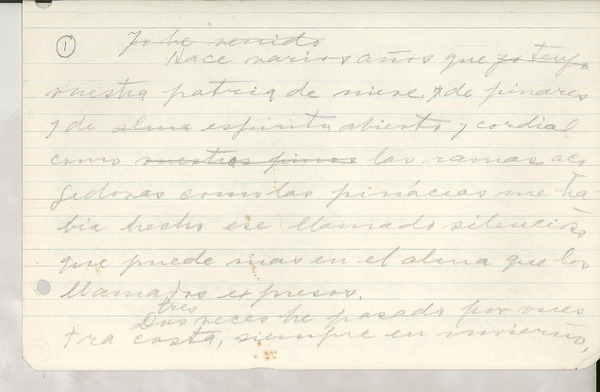 1
Yo he venido
Hace varios años que yo tengo
vuestra patria de nieve, y de pinares
y de alma espíritu abierto y cordial
como vuestros pinos las ramas aco
gedoras como las pináceas me ha
bía hecho ese llamado silencioso
que puede mas en el alma que los
llamados expresos.
tres
Dos veces he pasado por vues
tra costa, siempre en invierno,